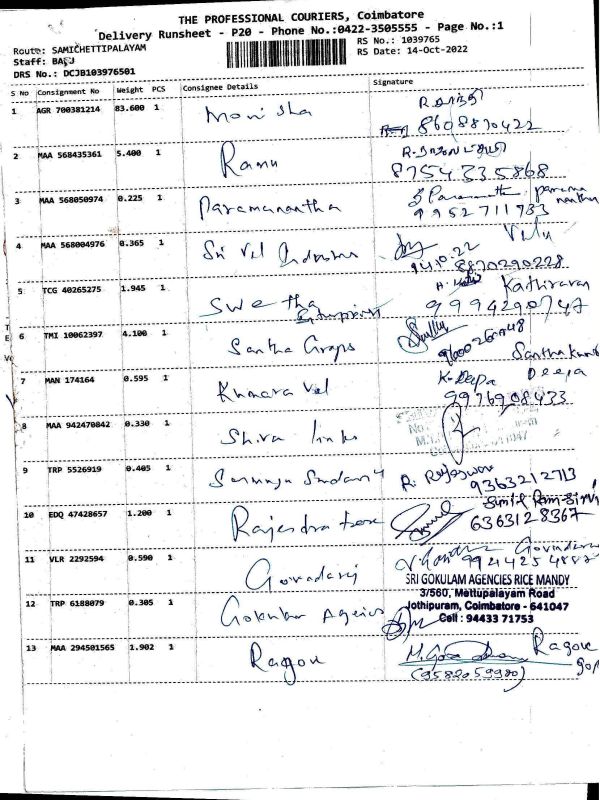 THE PROFESSIONAL COURIERS, Coimbatore
Delivery Runsheet - P20 - Phone No.:0422-3505555 - Page No.:1
Route: SAMICHETTIPALAYAM
RS No.: 1039765
Staff: BABU
RS Date: 14-Oct-2022
DRS No.: DCJB103976501
S No Consignment No Weight PCS Consignee Details Signature
1 AGR 700381214 83.600 1 Monisha
8608870422
2 MAA 568435361 5.400 1 Ramu
8754335868
3 MAA 568050974 0.225 1 Paramanantha
9952711933
4 MAA 568004976 0.365 1 Sri Vel Velu
14.10.22
8870290228
5 TCG 40265275 1.945 1 Swetha Kathiravan
Enterprises 9994290747
6 TMI 10062397 4.100 1 Santha
9600260748
7 MAN 174164 0.595 1 Kumara Vel K. Deepa Deepa
9976908433
8 MAA 942470842 0.330 1 Shiva links
9 TRP 5526919 0.405 1 R. Rajeswari
9363212713
10 EDQ 47428657 1.200 1 Rajendra
6363128367
11 VLR 2292594 0.590 1 Govindaraj
SRI GOKULAM AGENCIES RICE MANDY
3/560, Mettupalayam Road
12 TRP 6188079 0.305 1 Gokulam Agencies Jothipuram, Coimbatore - 641047
Cell : 94433 71753
13 MAA 294501565 1.902 1 Ragou Ragou
(9582059980)